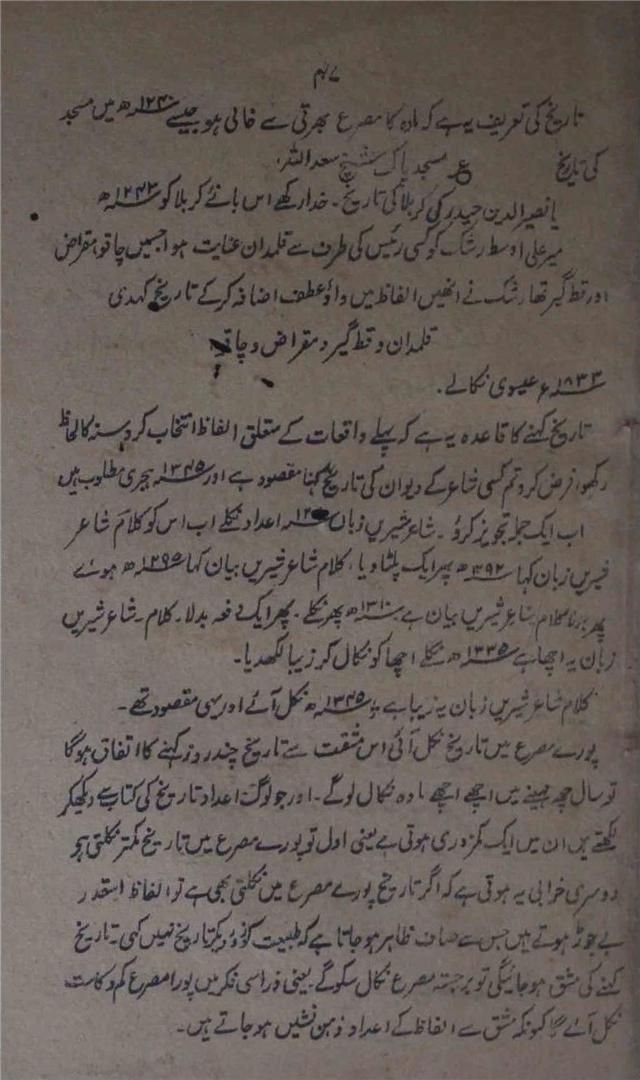 ۴۷
تاریخ کی تعریف یہ ہے کہ مادہ کا مصرع بھرتی سے خالی ہو جیسے ۱۲۴۰ھ میں مسجد
کی تاریخ ع مسجد پاک شیخ سعد اللہ.
یا نصیر الدین حیدر کی کربلا کی تاریخ۔ خدا رکھے اس بنائے کربلا کو ۱۲۴۳ھ
میر علی اوسط رشک کو کسی رئیس کی طرف سے قلمدان عنایت ہوا جسمیں چاقو مقراض
اور قط گیر تھا رشک نے انھیں الفاظ میں واؤ عطف اضافہ کر کے تاریخ کہدی
قلمدان و قط گیر و مقراض و چاقو
۱۸۳۳ء عیسوی نکالے۔
تاریخ کہنے کا قاعدہ یہ ہے کہ پہلے واقعات کے متعلق الفاظ انتخاب کرو سنہ کا لحاظ
رکھو، فرض کرو تم کسی شاعر کے دیوان کی تاریخ کہنا مقصود ہے اور ۱۳۴۵ ہجری مطلوب ہیں
اب ایک جملہ تجویز کرو۔ شاعر شیریں زبان اعداد نکلے اب اس کو کلام شاعر
شیریں زبان کہا ۱۳۹۲ھ پھر ایک پلٹا دیا، کلام شاعر شیریں بیان کہا ۱۲۹۵ھ ہوئے
پھر کلام شاعر شیریں بیان ہے ۱۳۱۰ھ پھر نکلے۔ پھر ایک دفعہ بدلا۔ کلام۔ شاعر شیریں
زبان یہ اچھا ہے ۱۳۳۵ھ نکلے اچھا کو نکال کر زیبا لکھدیا۔
کلام شاعر شیریں زبان یہ زیبا ہے ۱۳۴۵ھ نکل آئے اور یہی مقصود تھے۔
پورے مصرع میں تاریخ نکل آئی اس مشقت سے تاریخ چند روز کہنے کا اتفاق ہوگا
تو سال چھ مہینے میں اچھے اچھے مادہ نکال لوگے۔ اور جو لوگ اعداد تاریخ کی کتاب سے دیکھکر
لکھتے ہیں ان میں ایک کمزوری ہوتی ہے یعنی اول تو پورے مصرع میں تاریخ کمتر نکلتی ہے
دوسری خرابی یہ ہوتی ہے کہ اگر تاریخ پورے مصرع میں نکلتی بھی ہے تو الفاظ اسقدر
بے جوڑ ہوتے ہیں جس سے صاف ظاہر ہو جاتا ہے کہ طبیعت کو زور دیکر تاریخ نہیں کہی۔ تاریخ
کہنے کی مشق ہو جائیگی تو برجستہ مصرع نکال سکوگے۔ یعنی ذرا سی فکر میں پورا مصرع کم و کاست
نکل آئے گا کیونکہ مشق سے الفاظ کے اعداد ذہن نشیں ہو جاتے ہیں۔